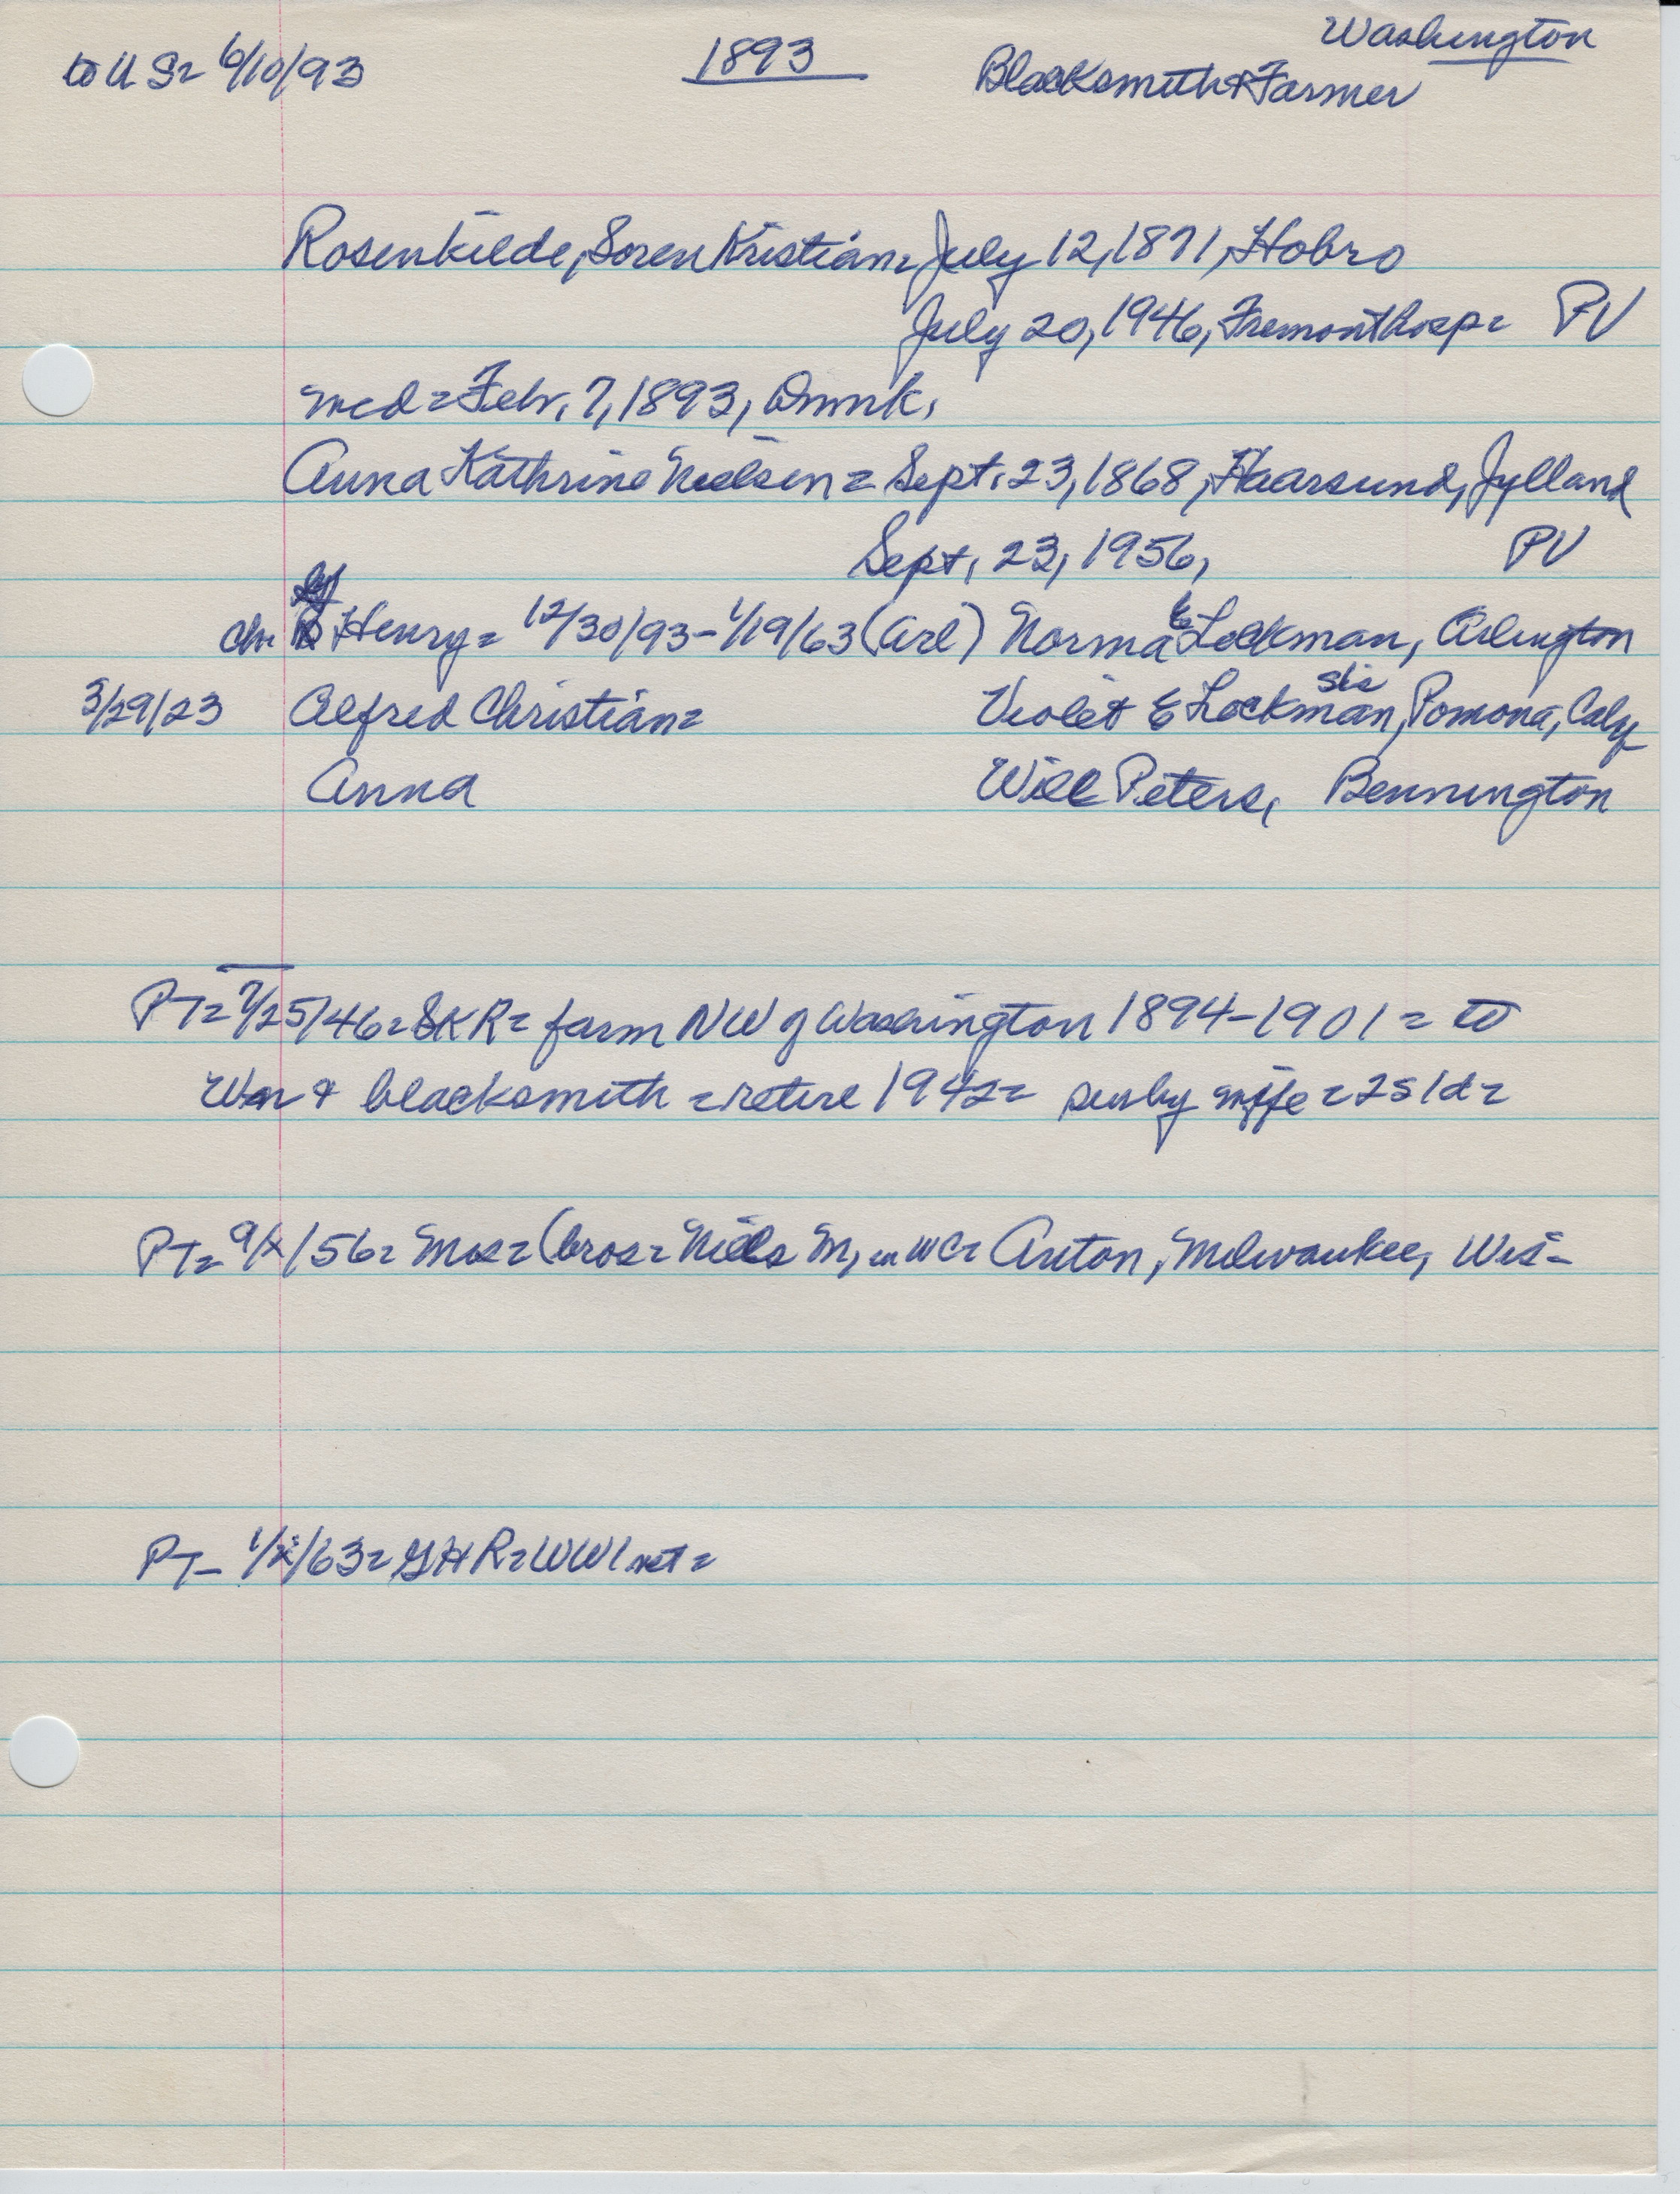 Washington
to US= 6/10/93 1893 Blacksmith & Farmer
Rosenkilde, Soren Kristian= July 12, 1871, Hobro
July 20, 1946, Fremont hosp= PV
med= Febr. 7, 1893, Dnmk.
Anna Kathrine Nielsen= Sept. 23, 1868, Haarsund, Jylland
Sept. 23, 1956, PV
ch= Henry= 12/30/93-1/19/63 (Arl) Norma E Lockman, Arlington
sis
3/29/23 Alfred Christian= Violet E Lockman, Pomona, Calif
Anna Will Peters, Bennington
PT= 7/25/46= SKR= farm NW of Washington 1894-1901= to
Wn & blacksmith= retire 1942= surv by wife= 2s 1d=
PT= 9/x/56= Mrs= (bros= Niels M, in WC= Anton, Milwaukee, Wis-
PT- 1/x/63= GHR= WW1 vet=